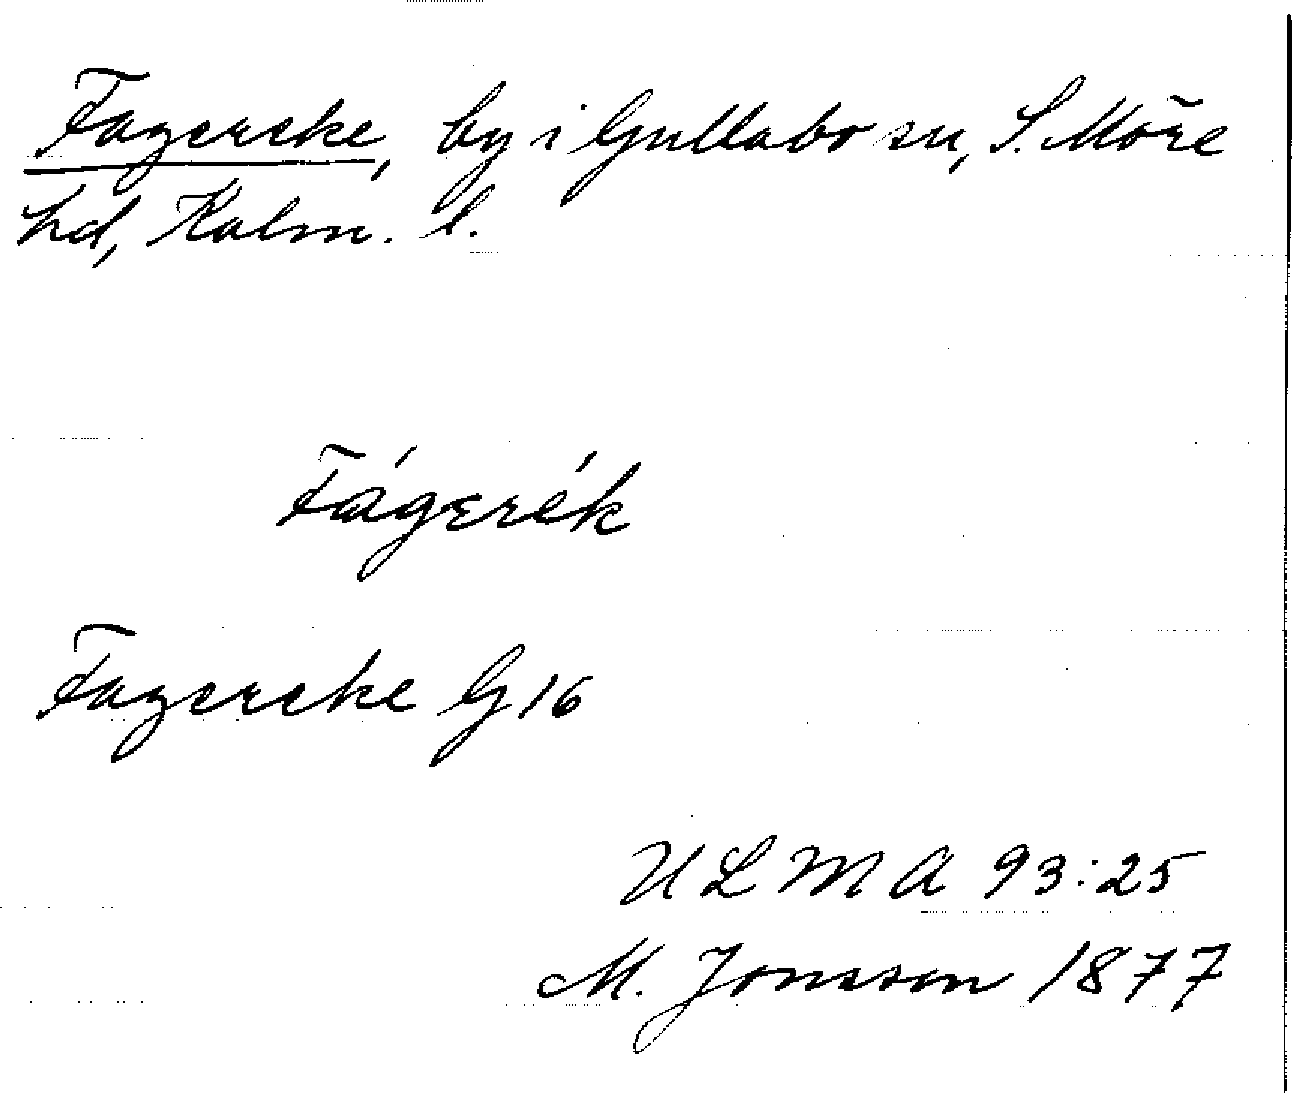 Fagereke, by i Gullabo sn, S. Möre
hd, Kalm. l.
Fágerék
Fagereke G 16
ULMA 93:25
M. Jonsson 1877